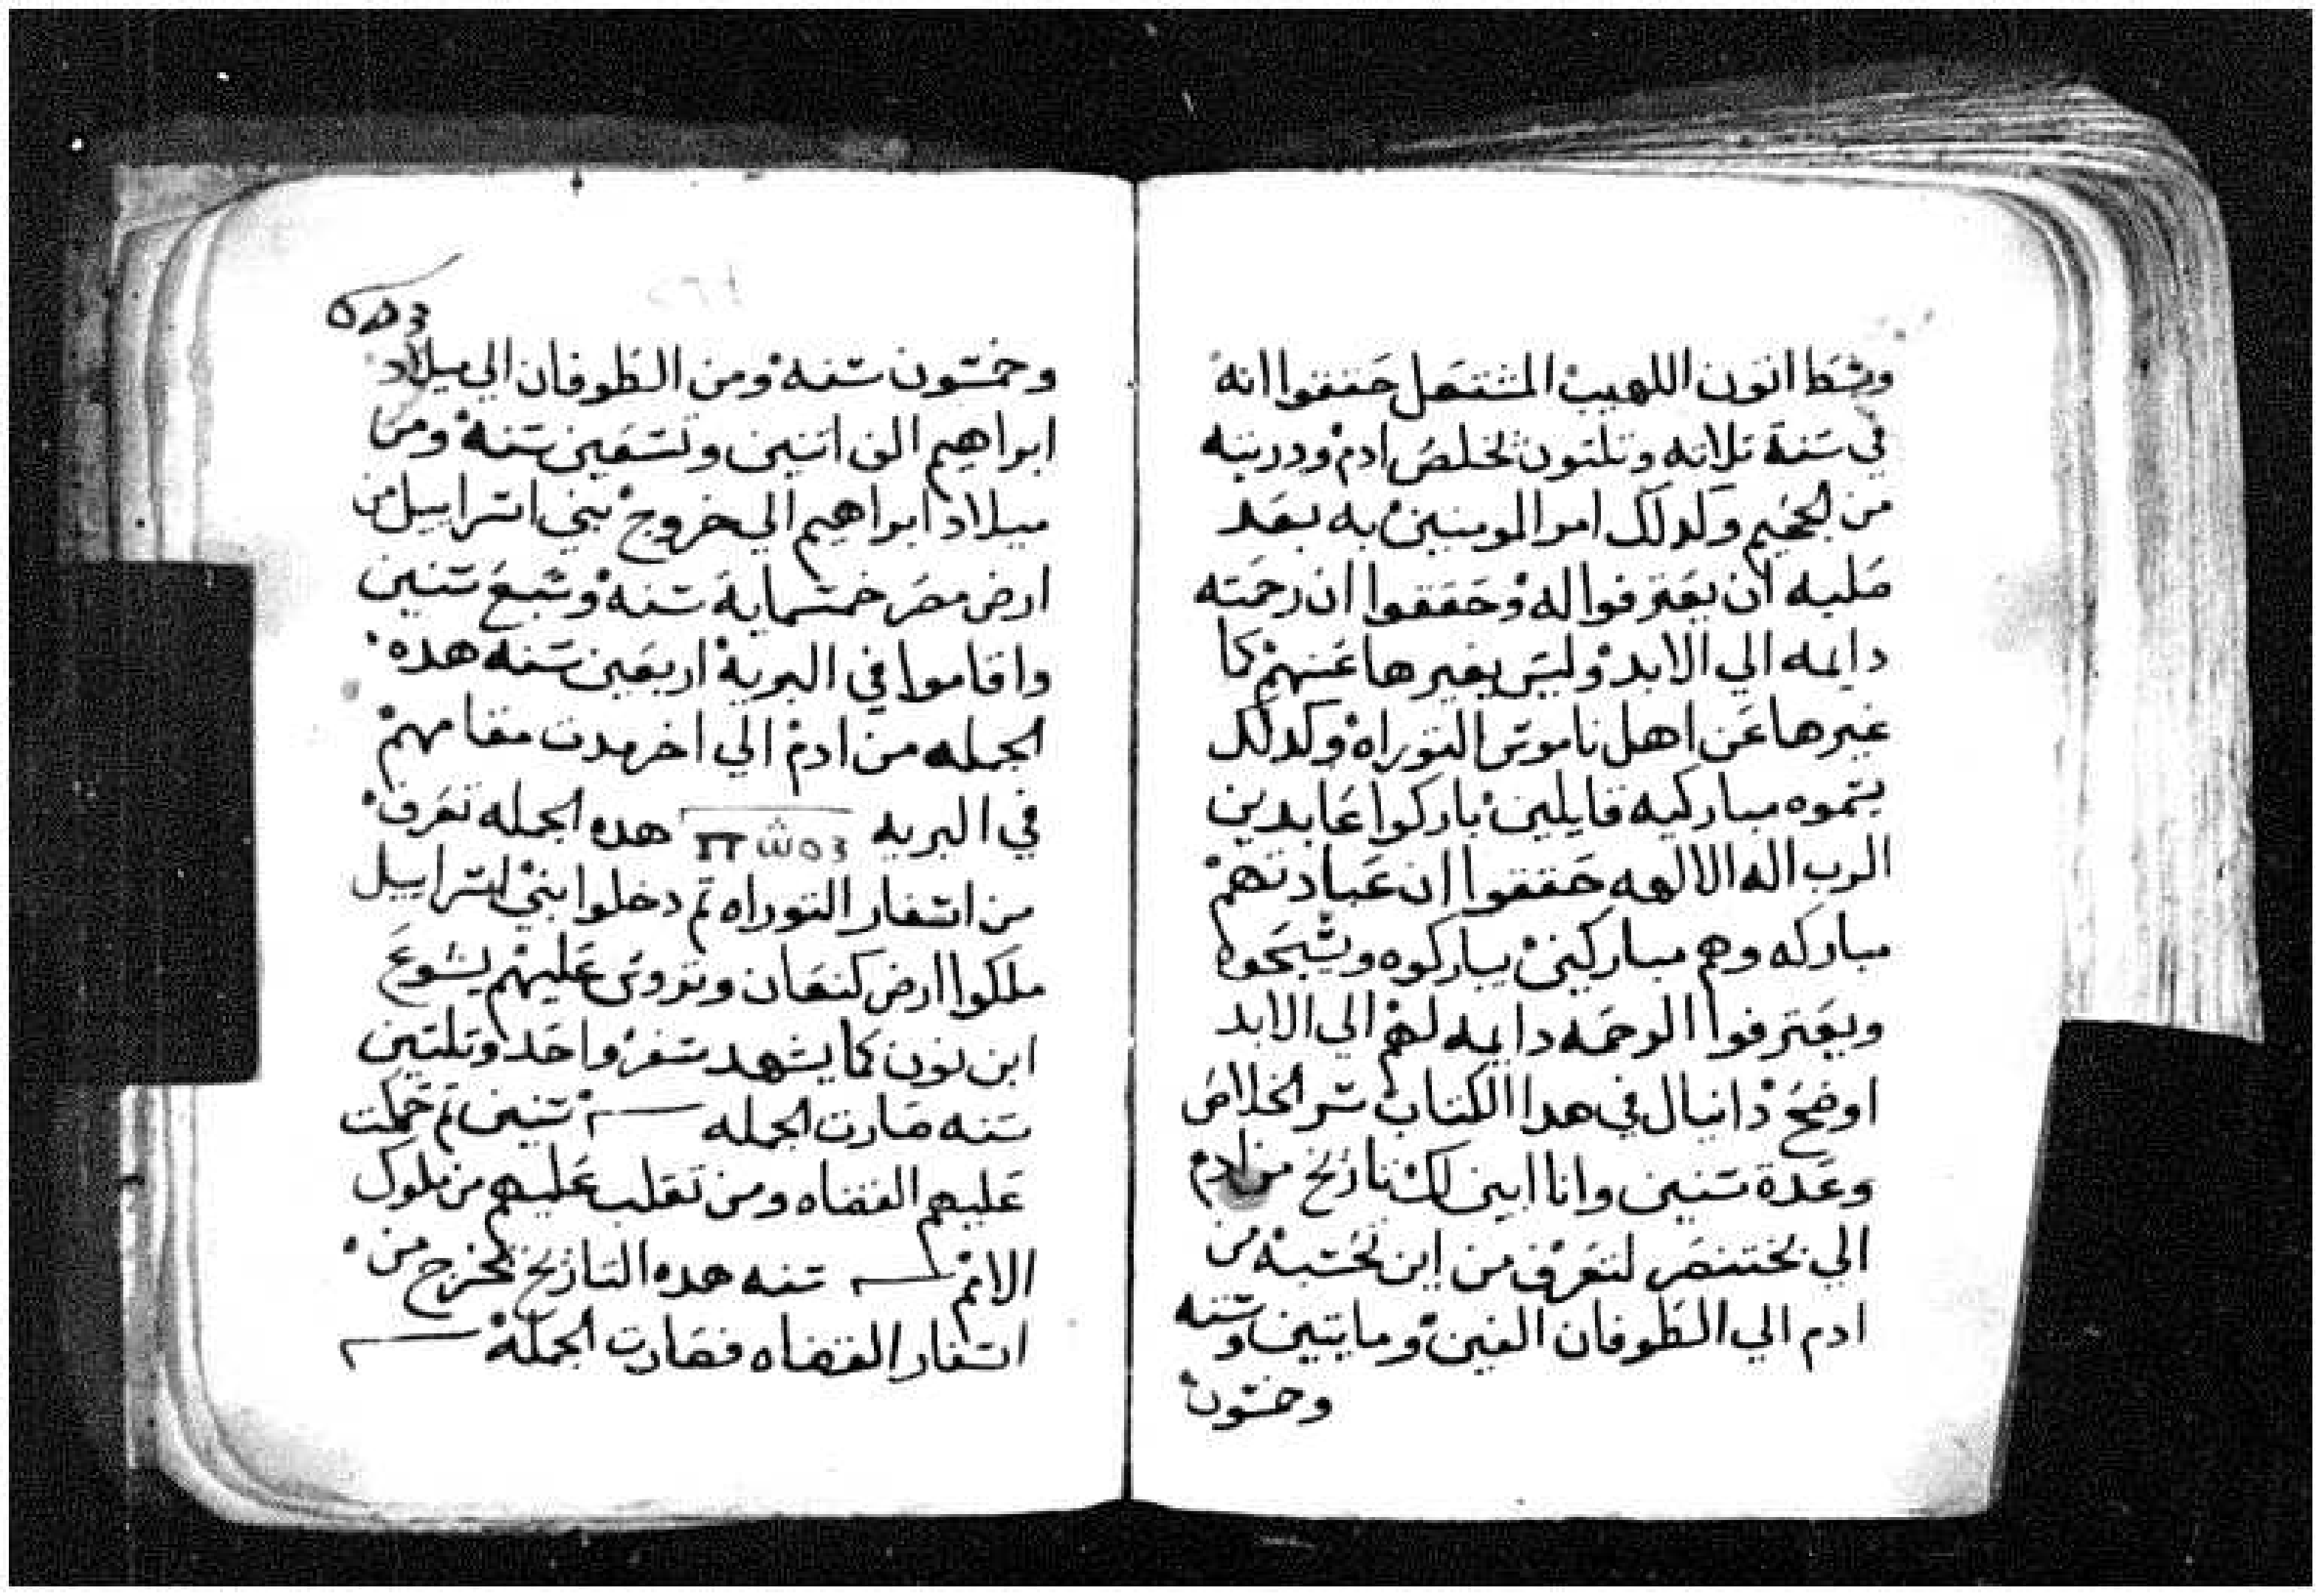 وسط اتون اللهيب المشتعل حققوا انه
في سنة تلاته وتلتون يخلص ادم ودريته
من الجحيم ولدلك امر المومنين به بعد
صلبه ان يعترفوا له وحققوا ان رحمته
دايمه الي الابد وليس يغيرها عنهم كما
غيرها عن اهل ناموس التوراه وكدلك
يتموه مباركيه قايلين باركوا عابدين
الرب اله الالهه حققوا ان عبادتهم
مباركه وهم مباركين يباركوه ويسبحوه
ويعترفوا الرحمه دايمه لهم الي الابد
اوضح دانيال في هدا الكتاب سر الخلاص
وعدة سنين وانا ابين لك تاريخ من ادم
الي بختنصر لتعرف من اين تحسبه من
ادم الي الطوفان الفين ومايتين وسته
وخمسون
وخمسون سنه ومن الطوفان الي ميلاد
ابراهيم الف اتنين وتسعين سنه ومن
ميلاد ابراهيم الي خروج بني اسراييل من
ارض مصر خمسماية سنه وسبع سنين
واقاموا في البرية اربعين سنه هده
الجمله من ادم الي اخر مدت مقامهم
في البريه هده الجمله تعرف
من اسفار التوراه تم دخلوا بني اسراييل
ملكوا ارض كنعان وتروس عليهم يشوع
ابن نون كما يشهد سفره واحد وتلتين
سنه صارت الجمله سنين تم حكمت
عليهم القضاه ومن تغلب عليهم من ملوك
الامم سنه هده التاريخ تخرج من
اسفار القضاه فصارت الجملة